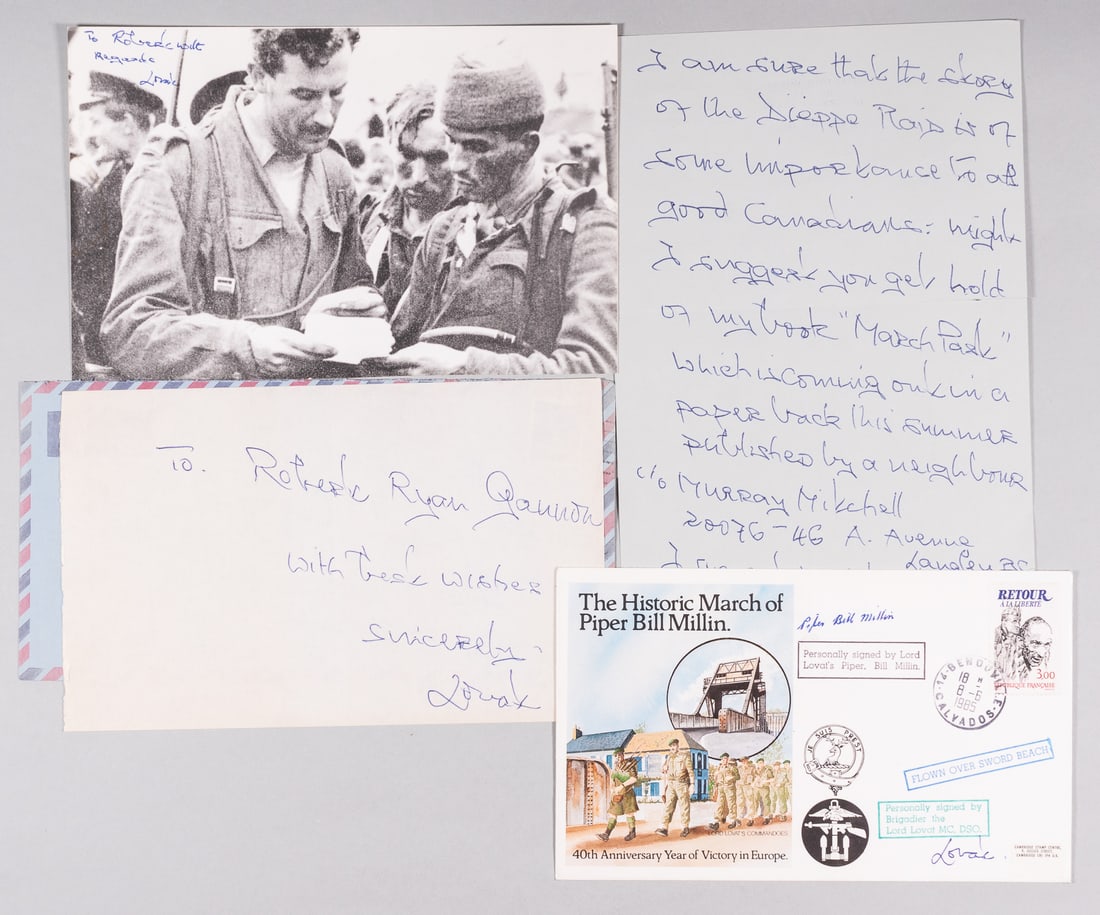 To Robert with
Regards
Lovat
I am sure that the story
of the Dieppe Raid is of
some importance to all
good Canadians: might
I suggest you get hold
of my book "March Past"
which is coming out in a
paper back this summer
published by a neighbour
c/o Murray Mitchell
20076-46 A. Avenue
Langley BC
To. Robert Ryan Gannon
with best wishes
Sincerely
Lovat
The Historic March of
Piper Bill Millin.
LORD LOVAT'S COMMANDOES
40th Anniversary Year of Victory in Europe.
Piper Bill Millin
Personally signed by Lord
Lovat's Piper, Bill Millin.
RETOUR
A LA LIBERTÉ
3.00
14 BENOUVILLE
18 H
8-6
1985
CALVADOS
JE SUIS PREST
FLOWN OVER SWORD BEACH
Personally signed by
Brigadier the
Lord Lovat MC, DSO.
Lovat